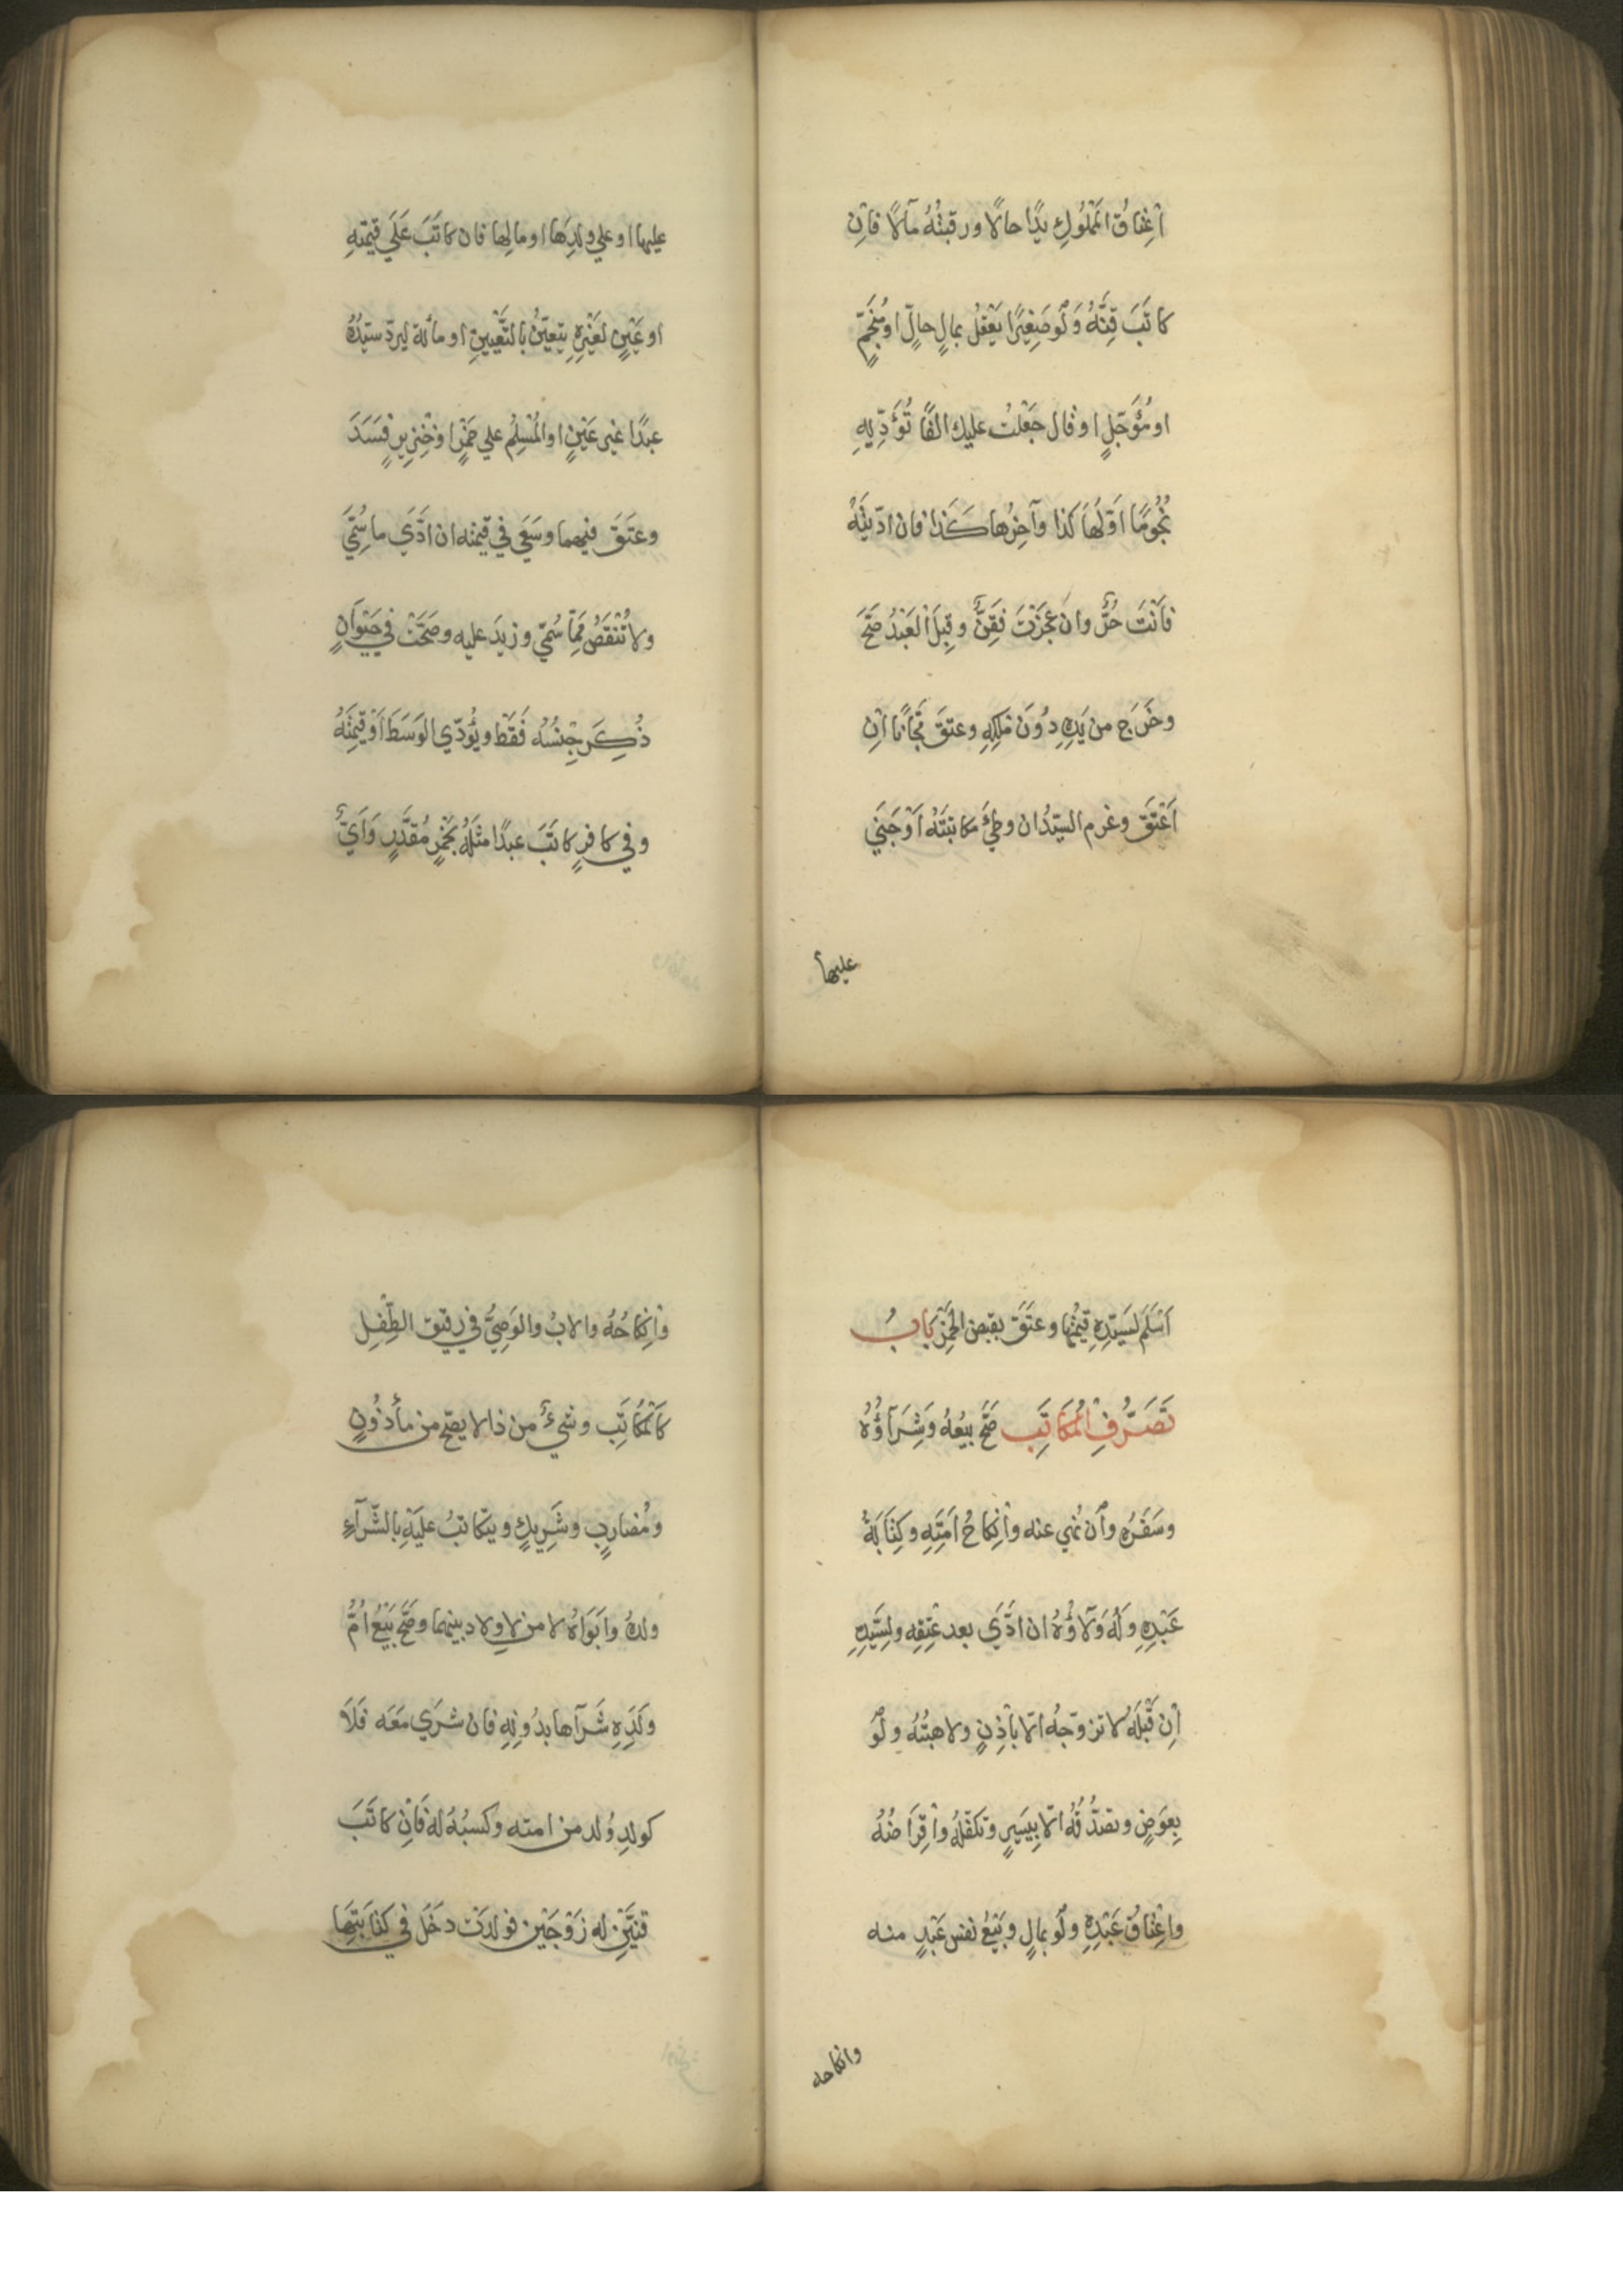 اِعْتَاقُ الْمَمْلُوكِ يدًا حالًا ورقبتُهُ مآلًا فاِن
كاتَبَ قِنَّهُ وَلَو صَغِيْرًا يَعْقِلُ بمالٍ حالٍّ او مُنَجَّمٍ
او مُؤَجَّلٍ او قال جَعَلْتُ عليك الفًا تُؤَدِّيهِ
نُجُومًا اَوّلُهَا كذا وآخِرُها كَذا فان ادّيتَهُ
فَاَنْتَ حُرٌّ وان عَجَزْتَ فَقِنٌّ وقَبِلَ الْعَبْدُ صَحَّ
وخَرَج من يَدِهِ دُوْنَ مِلْكِهِ وعتقَ مجّانًا اِن
اَعْتَقَ وغرم السيّدُ ان وطِئَ مكاتبَتَهُ اَوْ جَنَي
عليها
عليها او علي ولدِهَا او مالِها فان كاتَبَ عَلَي قيمتهِ
او عَيْنٍ لغَيْرِهِ يتعيّنُ بالتَّعْيِينِ او مأئة ليردّ سيّدُهُ
عبدًا غير عَيْنٍ او المُسْلِمُ علي خَمْرٍ او خِنْزِيرٍ فَسَدَ
وعتَقَ فيهما وسَعَي في قيمته ان ادَّي ما سُمِّيَ
ولا تُنْقَصُ مِمَّا سُمّي وزيدَ عليه وصَحَّتْ في حَيْوَانٍ
ذُكِرَ جِنْسُهُ فَقَطْ ويُؤدّي الوَسَطَ اَوْ قيمتَهُ
وفي كافرٍ كاتَبَ عبدًا مثلَهُ بخَمْرٍ مُقَدَّرٍ وَاَيٌّ
اَسْلَمَ لسَيّدِهِ قيمتُها وعتَقَ بقبض الخمْرِ بَابُ
تَصَرُّفِ الْمُكَاتَبِ صَحَّ بيعُهُ وَشِرَآؤُهُ
وسَفَرُهُ وأن نُهي عنه واِنْكاحُ اَمَتِهِ وكِتَابَةُ
عَبْدِهِ وَلَهُ وَلآؤُهُ ان ادَّي بعد عتقِهِ ولسَيّدِهِ
اِن قَبْلَهُ لا تزوّجُهُ اِلّا بأذِنٍ ولا هبتُهُ ولَو
بِعِوَضٍ وتصَدُّقُهُ اِلّا بِيَسِيرٍ وتكفّلُهُ واِقْرَاضُهُ
واِعْتاقُ عَبْدِهِ ولَو بمالٍ وبَيْعُ نفس عَبْدٍ منه
وانكاحه
وَاِنكاحُهُ والابُ والوَصِيُّ في رقيق الطِّفْلِ
كَالْمُكاتَبِ وشيءٌ من ذا لا يصحّ من مأذُوْنٍ
ومُضاربٍ وشَرِيكٍ ويتكاتبُ عَلَيْهِ بالشّرآءِ
ولدهُ وابَوَاهُ لا من لا وِلاد بينهما وصَحَّ بَيْعُ اُمِّ
وَلَدِهِ شَرَآها بدُونِهِ فان شرَي مَعَه فَلَا
كولدٍ وُلد من امته وكسبُهُ له فَاِنْ كاتَبَ
قِنَّيْنِ له زَوْجَيْنِ فولدَتْ دخَلَ في كتابَتِهَا